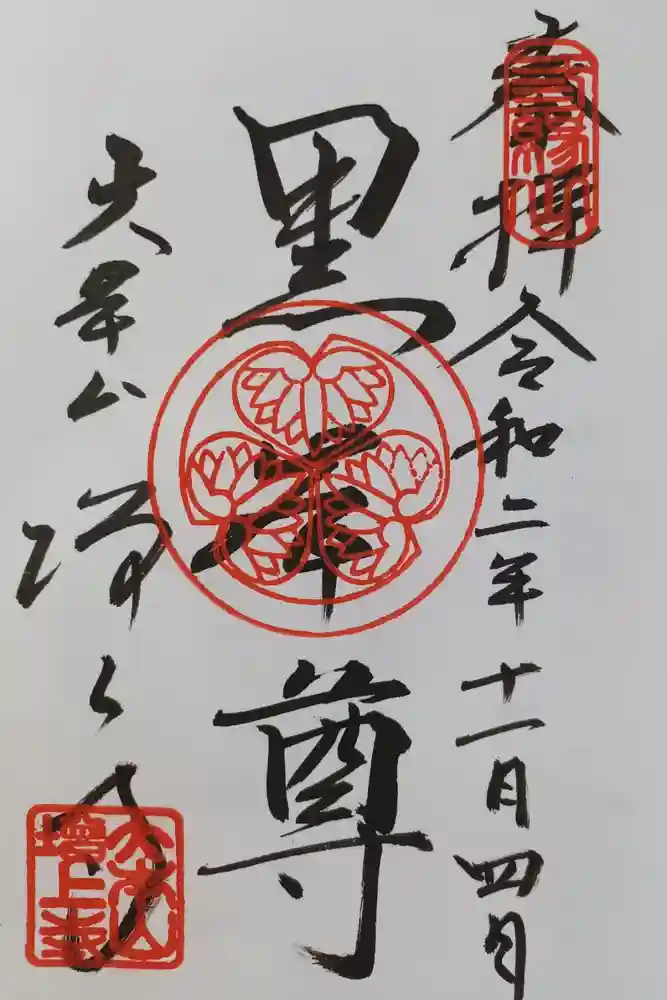 奉拝 令和二年十一月四日
黒本尊
大本山 増上寺
三縁山
大本山
増上寺